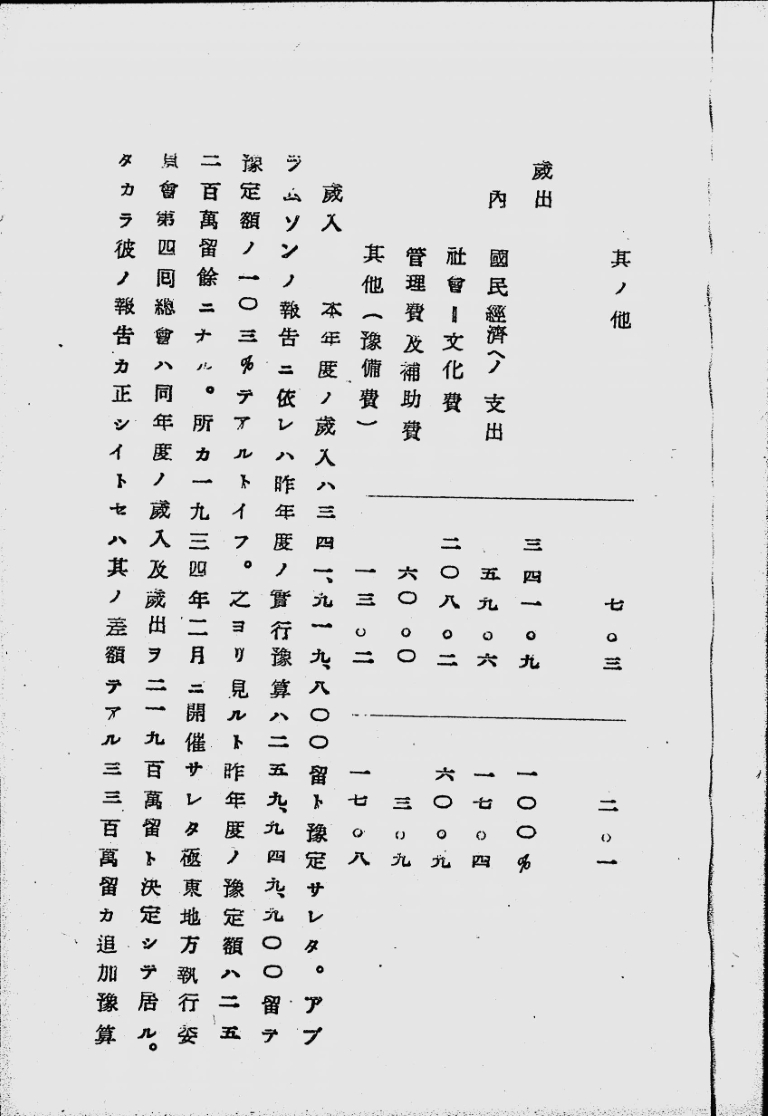 其ノ他　七。三　二。一
歲出　三四一。九　一〇〇％
內　國民經濟ヘノ支出　五九。六　一七。四
社會ー文化費　二〇八。二　六〇。九
管理費及補助費　六〇。〇　三。九
其他（豫備費）　一三。二　一七。八
歲入　本年度ノ歲入ハ三四一、九一九、八〇〇留ト豫定サレタ。アブ
ラムソンノ報告ニ依レハ昨年度ノ實行豫算ハ二五九、九四九、九〇〇留テ
豫定額ノ一〇三％テアルトイフ。之ヨリ見ルト昨年度ノ豫定額ハ二五
二百萬留餘ニナル。所カ一九三四年二月ニ開催サレタ極東地方執行委
員會第四囘總會ハ同年度ノ歲入及歲出ヲ二一九百萬留ト決定シテ居ル。
タカラ彼ノ報告カ正シイトセハ其ノ差額テアル三三百萬留カ追加豫算